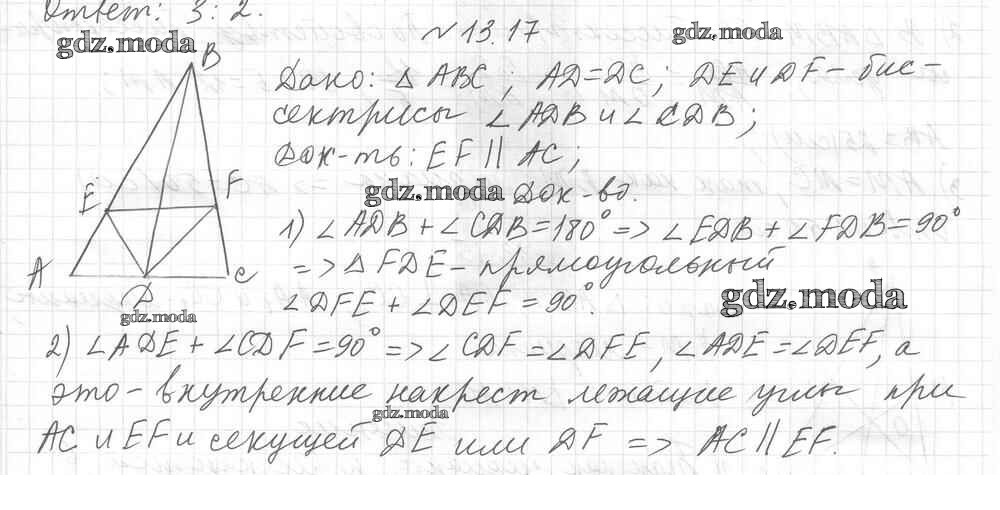 Ответ: 3:2.
gdz.moda
№13.17
gdz.moda
B
Дано: △ABC; AD=DC; DE и DF – бис-
сектрисы ∠ADB и ∠CDB;
Док-ть: EF ∥ AC;
E
F
gdz.moda
Док-во.
1) ∠ADB + ∠CDB = 180° => ∠EDB + ∠FDB = 90°
A
C
D
=> △FDE – прямоугольный
gdz.moda
∠DFE + ∠DEF = 90°.
gdz.moda
2) ∠ADE + ∠CDF = 90° => ∠CDF = ∠DFE, ∠ADE = ∠DEF, а
это – внутренние накрест лежащие углы при
gdz.moda
AC и EF и секущей DE или DF => AC ∥ EF.